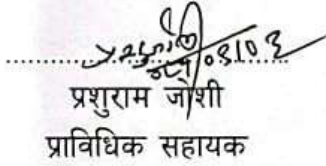 प्रशुराम जोशी
प्राविधिक सहायक